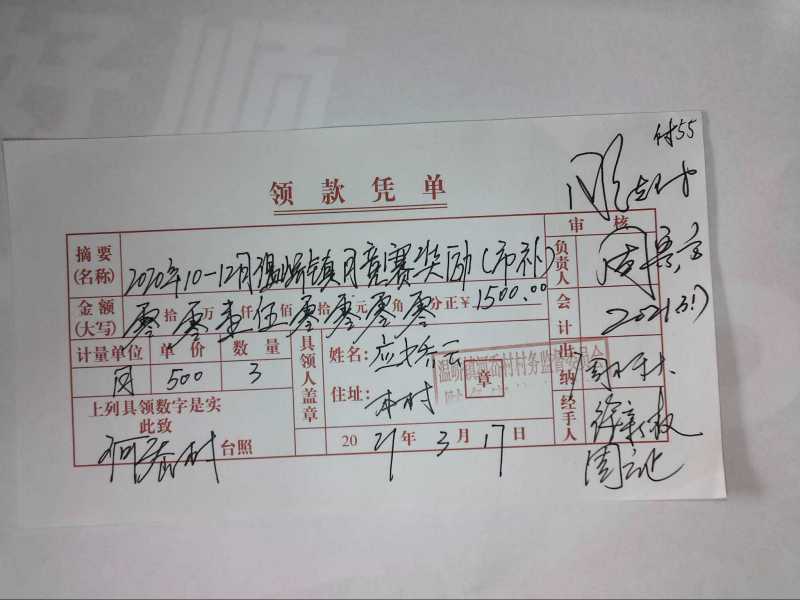 好顺
付55
领款凭单
审核
摘要(名称) 2020年10-12月温峤镇月竞赛奖励(市补)
负责人
金额(大写) 零拾零万壹仟伍佰零拾零元零角零分正¥1500.00
会计
2021.3.17
计量单位 单价 数量
月 500 3
具领人盖章
姓名:应
住址:本村
温峤镇河岙村村务监督委员会
章
出纳
经手人
上列具领数字是实
此致
河岙村台照
2021年3月17日